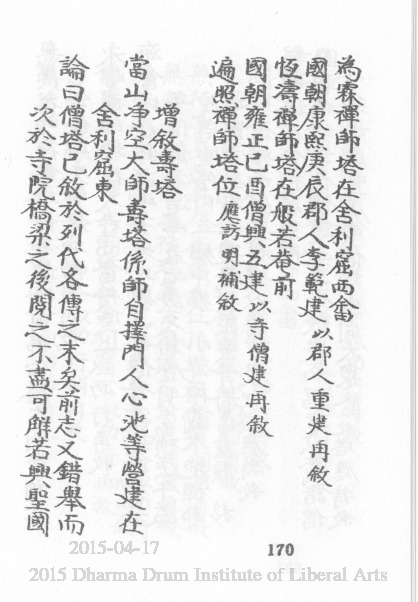 為霖禪師塔在舍利窟西畬
國朝康熙庚辰郡人李範建以郡人重建再敘
恆濤禪師塔在般若菴前
國朝雍正己酉僧興五建以寺僧建再敘
遍照禪師塔位應訪明補敘
增敘壽塔
當山淨空大師壽塔係師自擇門人心池等營建在
舍利窟東
論曰僧塔已敘於列代各傳之末矣前志又錯舉而
次於寺院橋梁之後閱之不盡可解若興聖國
170
2015-04-17
2015 Dharma Drum Institute of Liberal Arts